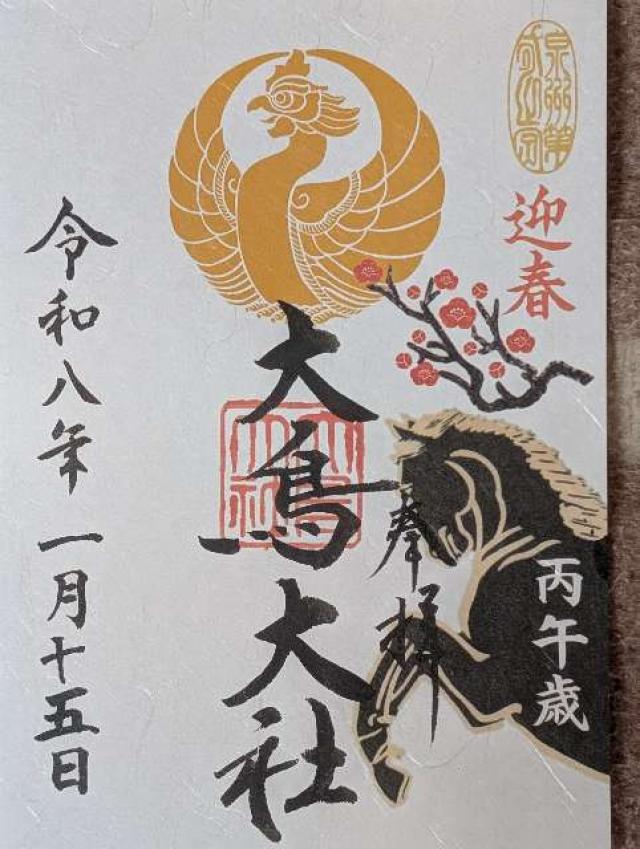 泉州第
弐之宮
迎春
丙午歳
奉拝
大鳥大社
大鳥大社
令和八年 一月十五日